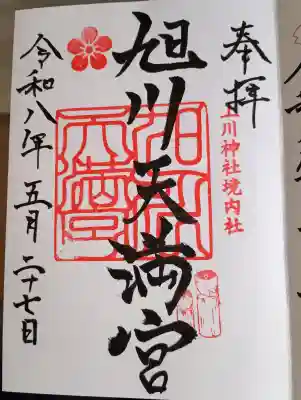 奉拝
上川神社境内社
旭川天満宮
令和八年五月二十七日